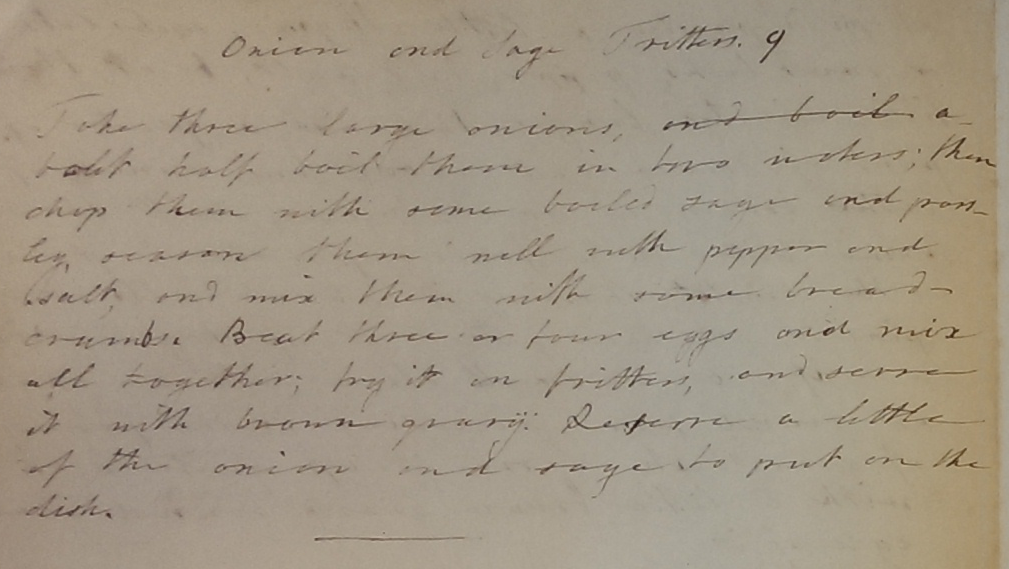 Onion and Sage Fritters. 9
Take three large onions, and boil a-
bout half boil them in two waters; then
chop them with some boiled sage and pars-
ley, season them well with pepper and
salt, and mix them with some bread-
crumbs. Beat three or four eggs and mix
all together; fry it in fritters, and serve
it with brown gravy. Reserve a little
of the onion and sage to put on the
dish.